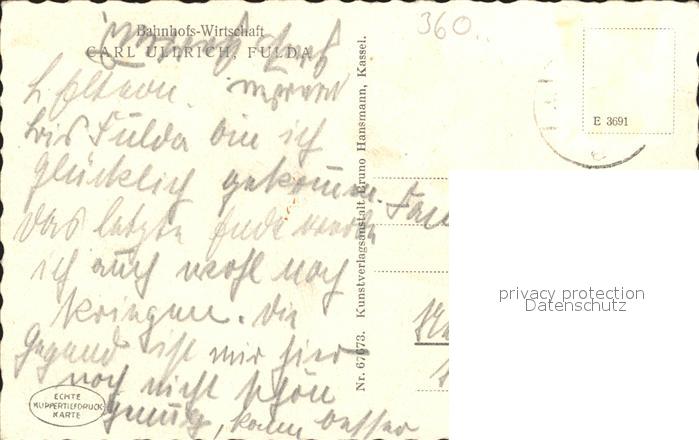 Bahnhofs-Wirtschaft
CARL ULLRICH, FULDA
360.
E 3691
L. Eltern.
bis Fulda bin ich
glücklich gekommen.
das letzte Ende werde
ich auch wohl noch
kriegen. Die
Gegend ist mir hier
noch nicht schön
genug, kann besser
Nr. 67673. Kunstverlagsanstalt Bruno Hansmann, Kassel.
ECHTE
KUPFERTIEFDRUCK-
KARTE
privacy protection
Datenschutz